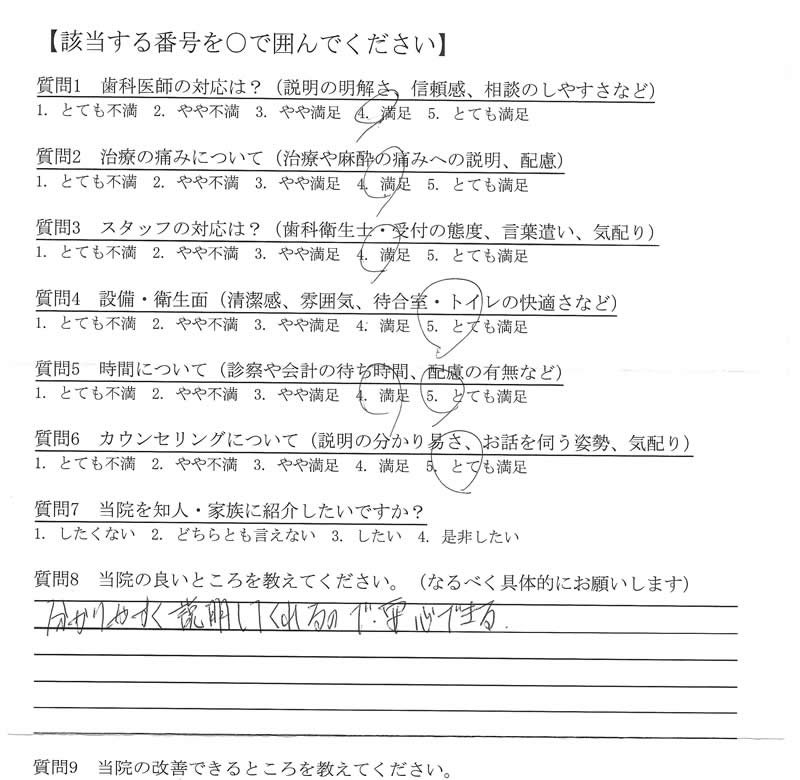 【該当する番号を〇で囲んでください】
質問1 歯科医師の対応は?(説明の明解さ、信頼感、相談のしやすさなど)
1. とても不満 2. やや不満 3. やや満足 4. 満足 5. とても満足
質問2 治療の痛みについて(治療や麻酔の痛みへの説明、配慮)
1. とても不満 2. やや不満 3. やや満足 4. 満足 5. とても満足
質問3 スタッフの対応は?(歯科衛生士・受付の態度、言葉遣い、気配り)
1. とても不満 2. やや不満 3. やや満足 4. 満足 5. とても満足
質問4 設備・衛生面(清潔感、雰囲気、待合室・トイレの快適さなど)
1. とても不満 2. やや不満 3. やや満足 4. 満足 5. とても満足
質問5 時間について(診察や会計の待ち時間、配慮の有無など)
1. とても不満 2. やや不満 3. やや満足 4. 満足 5. とても満足
質問6 カウンセリングについて(説明の分かり易さ、お話を伺う姿勢、気配り)
1. とても不満 2. やや不満 3. やや満足 4. 満足 5. とても満足
質問7 当院を知人・家族に紹介したいですか?
1. したくない 2. どちらとも言えない 3. したい 4. 是非したい
質問8 当院の良いところを教えてください。(なるべく具体的にお願いします)
分かりやすく説明してくれるので、安心できる.
質問9 当院の改善できるところを教えてください。